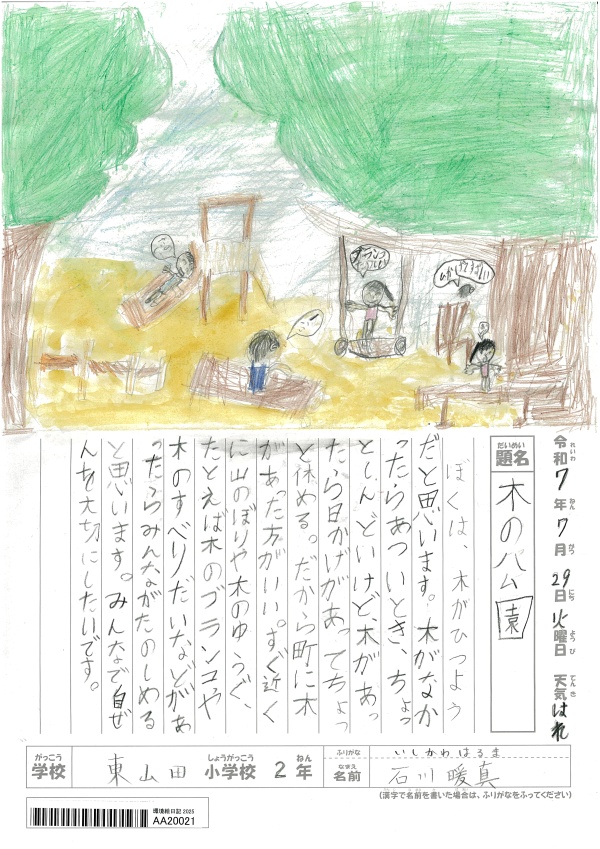 ブランコたのしい
令和7年7月29日火曜日 天気はれ
れいわ ねん がつ にち ようび てんき
だいめい
題名 木のパム園
ぼくは、木がひつよう
だと思います。木がなか
ったらあついとき、ちょっ
としんどいけど、木があっ
たら日かげがあってちょっ
と休める。だから町に木
があった方がいい。すぐ近く
に山のぼりや木のゆうぐ、
たとえば木のブランコや
木のすべりだいなどがあ
ったらみんながたのしめる
と思います。みんなで自ぜ
んを大切にしたいです。
がっこう しょうがっこう ねん
学校 東山田 小学校 2年
ふりがな いしかわはるま
なまえ
名前 石川暖真
(漢字で名前を書いた場合は、ふりがなをふってください)
環境絵日記 2025
AA20021